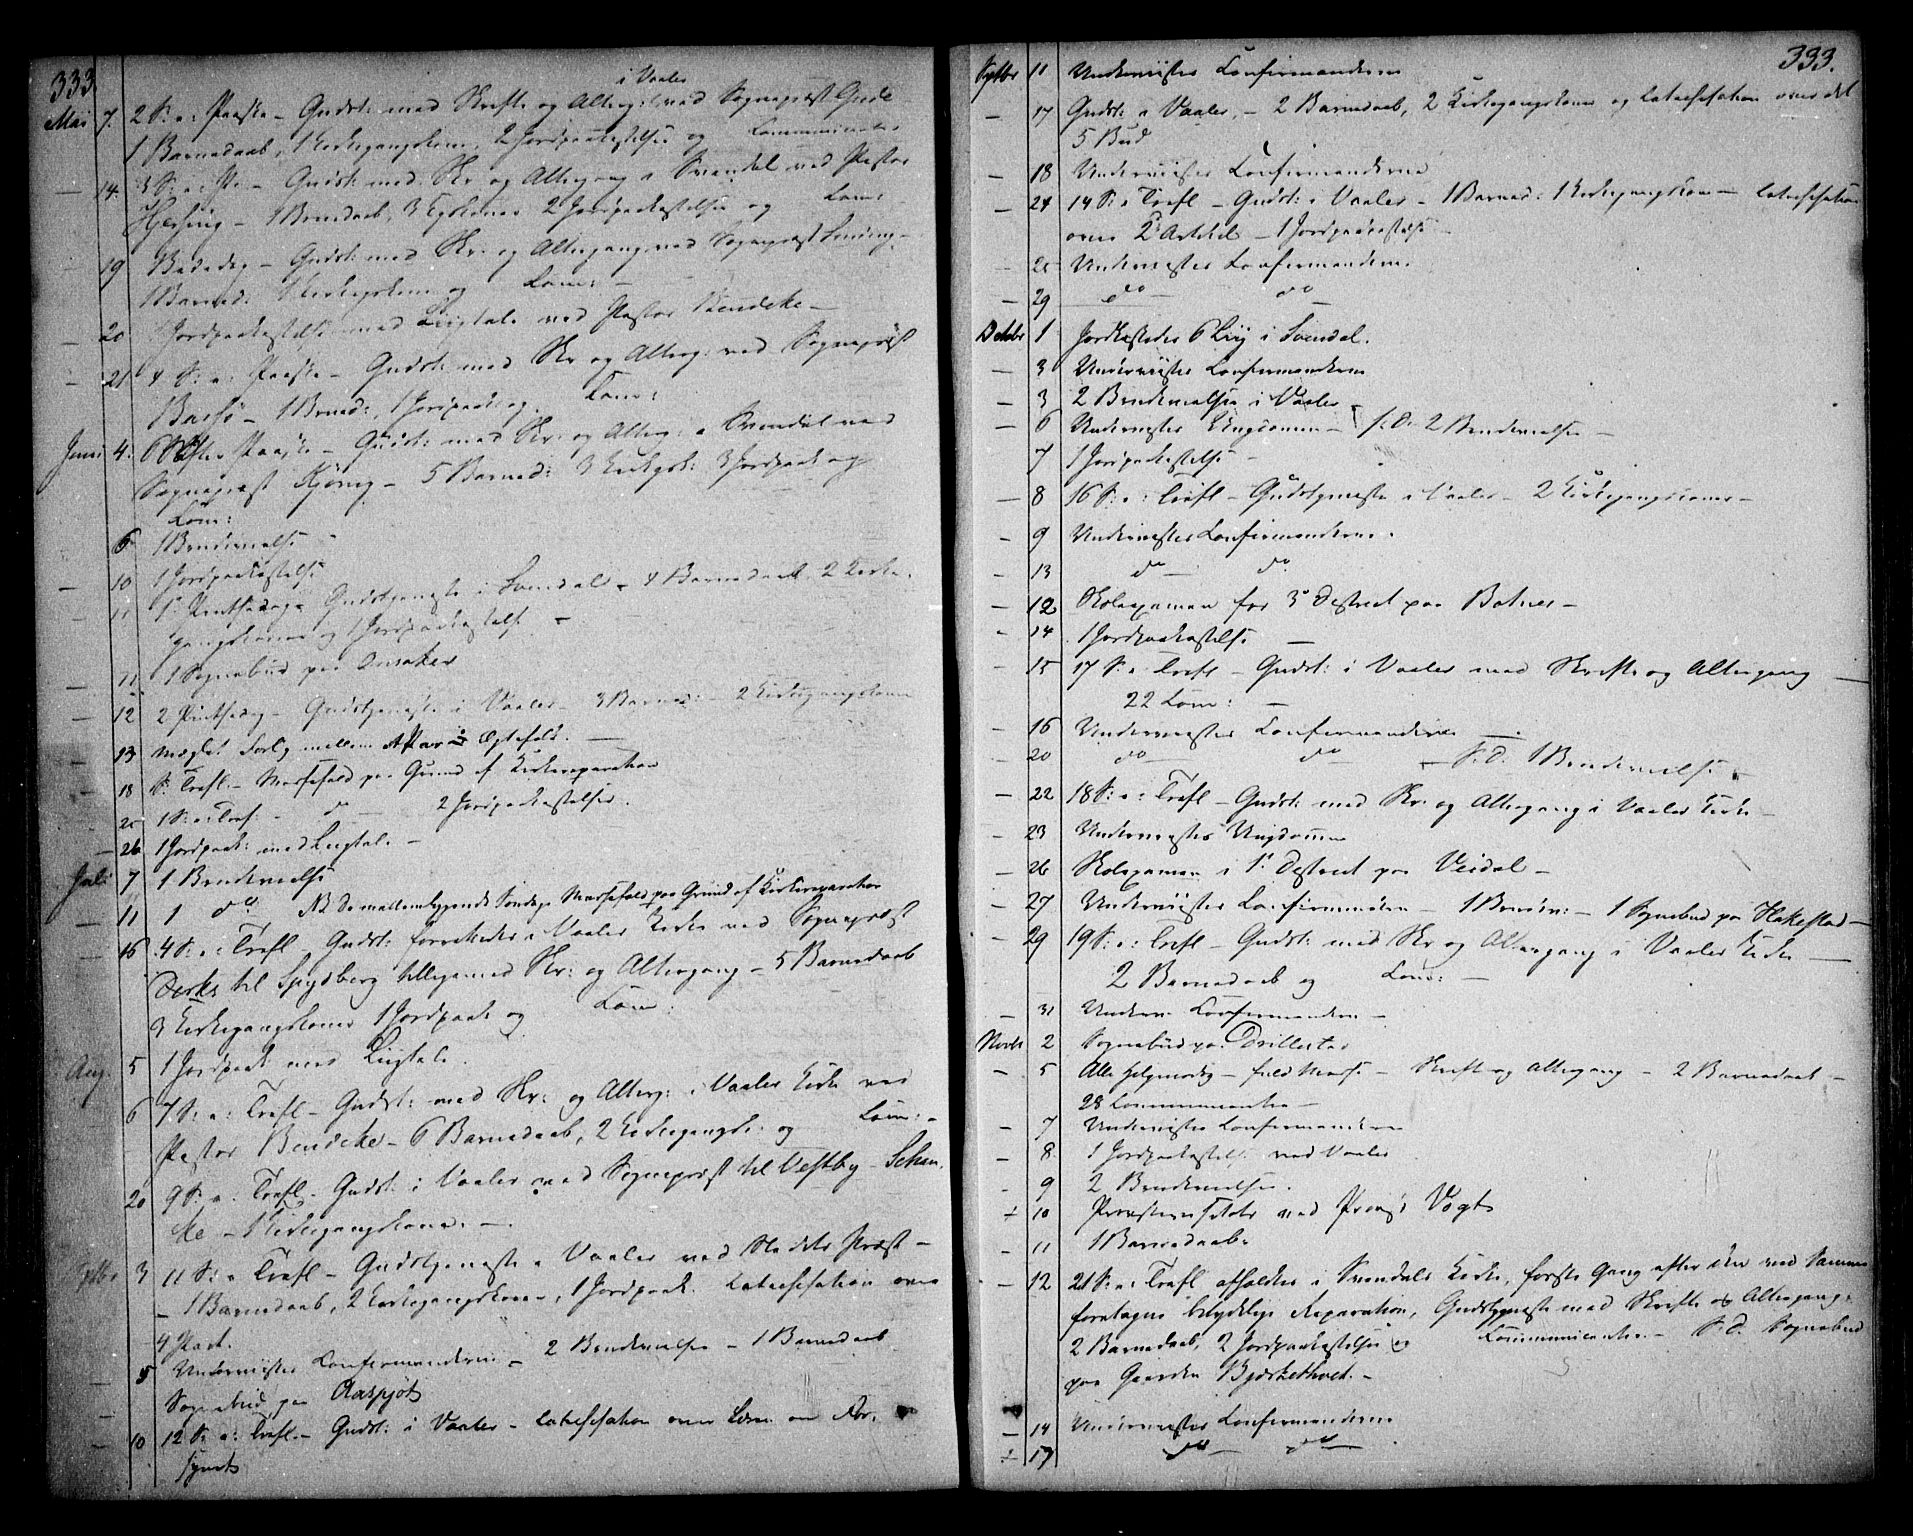 333.
i Vaaler
Mai 7. 2 S: e: Paaske – Gudst: med Skrifte og Alterg: ved Sognepræst Gude
1 Barnedaab, 1 Kirkegangskone, 2 Jordpaakastelse og Communicanter
– 14. 3 S: e: P – Gudst: med Skr: og Altergang i Svendal ved Pastor
– 1 Barnedaab, 3 2 Jordpaakastelse og Com:
– 19 Bededag – Gudst: med Skr: og Altergang ved Sognepræst
1 Barned: 1 Kirkegskone og Com: –
– 20 1 Jordpaakastelse med Liigtale ved Pastor Bendeke –
– 21 4 S: e: Paaske – Gudst: med Skr og Alterg: ved Sognepræst
– 1 Barned:, 1 Jordpaak: og Com:
Juni 4. 6 S: efter Paaske – Gudst: med Skr: og Alterg: i Svendal ved
Sognepræst – 5 Barned: 3 Kirkgsk: 3 Jordpaak og
Com:
6 1 Brudevielse –
– 10 1 Jordpaakastelse
11 1 Pintsedag Gudstjeneste i Svendal – 4 Barnedaab, 2 Kirke-
gangskoner og 1 Jordpaakastelse –
– 11 1 Sognebud paa
– 12 2 Pintsedag – Gudstjeneste i Vaaler – 3 Barned: – 2 Kirkegangskoner
– 13 mæglet Forlig mellem Ægtefolk. –
– 18 S: Trefl. – Messefald paa Grund af Kirkereparation
– 25 1 S: e: Tref: – do – 2 Jordpaakastelser.
– 26 1 Jordpaak: med Liigtale –
Juli 7 1 Brudevielse
– 11 1 do. NB de mellemliggende Søndage Messefald paa Grund af Kirkereparation
– 16 4 S: e: Trefl – Gudst: forrettedes i Vaaler Kirke ved Sognepræst
Dirks til Spydberg tilligemed Skr: og Altergang – 5 Barnedaab
3 Kirkegangskoner 1 Jordpaak og Com:
Aug. 5 1 Jordpaak med Liigtale.
6 7 S: e: Trefl – Gudst: med Skr: og Alterg: i Vaaler Kirke ved
Pastor Bendeke – 6 Barnedaab, 2 Kirkegangsk: og Com: –
20 9 S: e: Trefl – Gudst: i Vaaler ved Sognepræst til Vestby – Schan-
ke – 1 Kirkegangskone. –
Septbr 3 11 S: e Trefl – Gudstjeneste i Vaaler ved Stedets Præst –
– 1 Barnedaab, 2 Kirkegangskoner, 1 Jordpaak. Catechisation over
4 Part.
5 Underviistes Confirmanderne – 2 Brudevielser – 1 Barnedaab
Sognebud paa Aaspjøt
– 10 12 S: e: Trefl. – Gudst: i Vaaler – Catechisation over Læren om For-
synet
333.
Septbr 11 Underviistes Confirmanderne
– 17 Gudst: i Vaaler, – 2 Barnedaab, 2 Kirkegangskoner og Catechisation over det
5 Bud
– 18 Underviistes Confirmanderne
– 24 14 S: e Trefl – Gudst: i Vaaler – 1 Barned: 1 Kirkegangskone – Catechisation
over 2 Artikel – 1 Jordpaakastelse
– 25 Underviistes Confirmanderne.
– 29 do – do –
Octobr 1 Jordkastedes 6 Liig i Svendal.
– 3 Underviistes Confirmanderne
– 3 2 Brudevielser i Vaaler
– 6 Underviistes Ungdommen – s. D. 2 Brudevielser –
7 1 Jordpaakastelse –
– 8 16 S: e: Trefl – Gudstjeneste i Vaaler – 2 Kirkegangskoner –
– 9 Underviistes Confirmanderne.
– 13 do – do
– 12 Skoleexamen for 3 District paa Botner –
– 14 1 Jordpaakastelse –
– 15 17 S: e Trefl – Gudst: i Vaaler med Skrifte og Altergang –
22 Com: –
– 16 Underviistes Confirmanderne –
– 20 do – do – S. D. 1 Brudevielse –
– 22 18 S: e: Trefl – Gudst: med Skr: og Altergang i Vaaler Kirke –
– 23 Underviistes Ungdommen
– 26 Skoleexamen i 1 District paa Veidal –
– 27 Underviistes Confirmanderne – 1 Brudev: – 1 Sognebud paa Hakestad –
– 29 19 S: e: Trefl – Gudst: med Skr og Altergang i Vaaler Kirke –
2 Barnedaab og Com: –
– 31 Underv: Confirmanderne –
Novbr 2 Sognebud paa
– 5 Alle Helgensdag – fuld Messe – Skrift og Altergang – 2 Barnedaab –
28 Communicanter –
– 7 Underviistes Confirmanderne
– 8 1 Jordpaakastelse ved Vaaler
– 9 2 Brudevielser.
+ 10 ved Provst Vogt
– 11 1 Barnedaab
– 12 21 S: e: Trefl afholdtes i Svendals Kirke, første Gang efter den ved Samme
foretagne betydelige Reparation, Gudstjeneste med Skrifte og Altergang.
2 Barnedaab, 2 Jordpaakastelser og Communicanter – S. D. Sognebud
paa Gaarden Bjørkethvet. –
– 14 Underviistes Confirmanderne
+ 17 do – do –